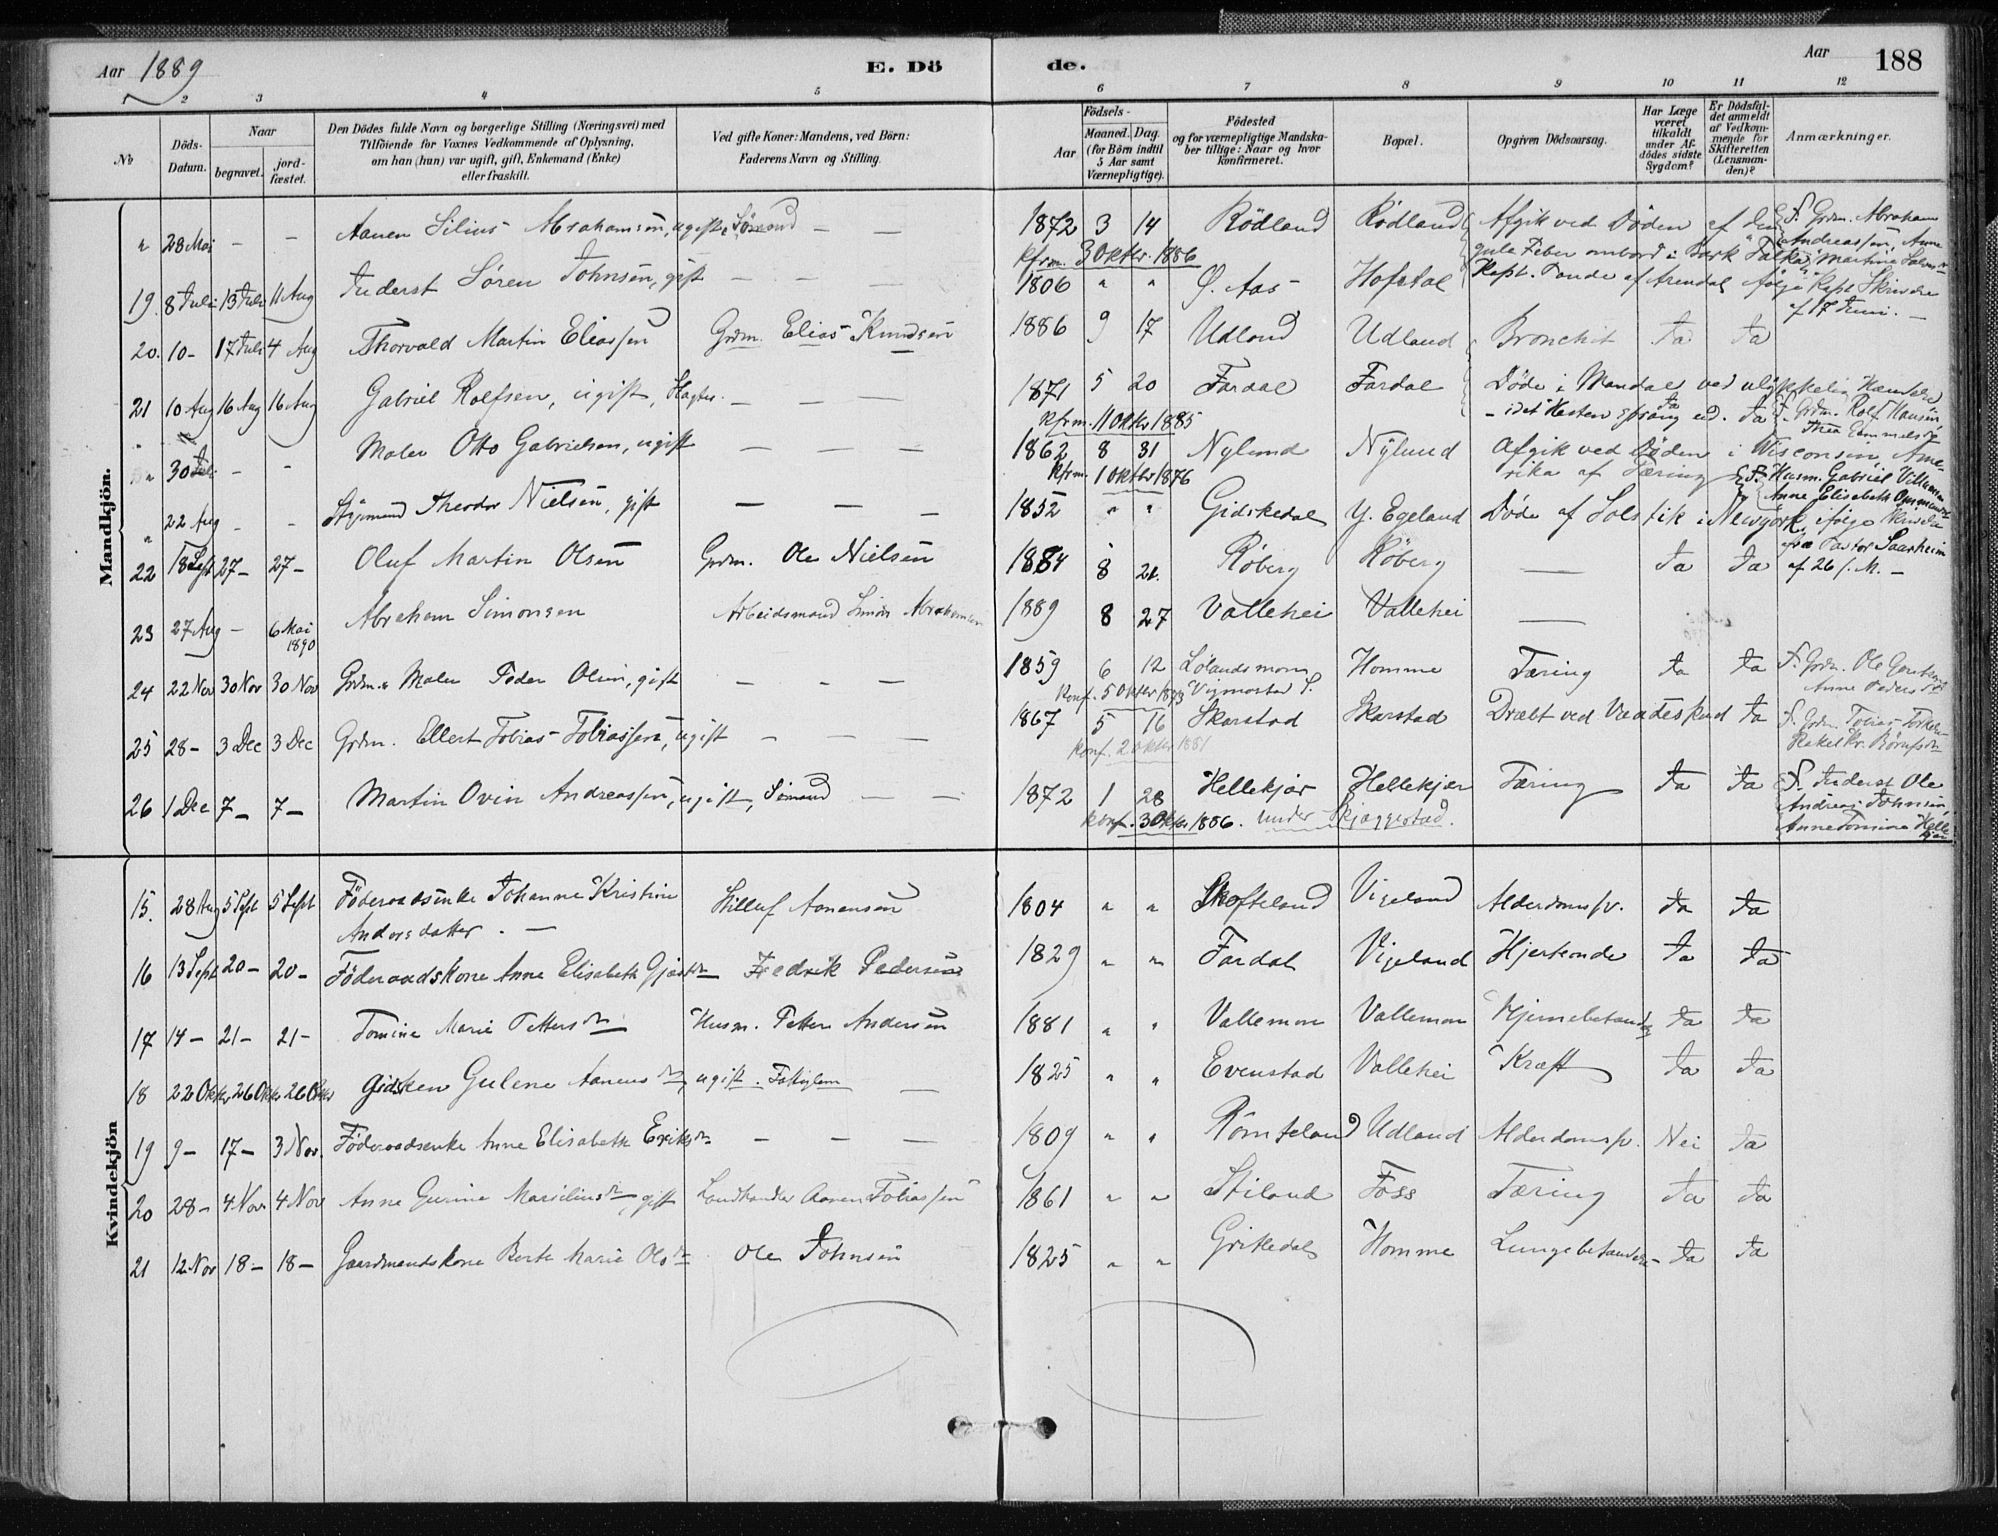 Aar 1889 E. Dö de. Aar 188
1 2 3 4 5 6 7 8 9 10 11 12
No
Döds-Datum.
Naar
begravet.
jordfæstet.
Den Dödes fulde Navn og borgerlige Stilling (Næringsvei) med
Tilföiende for Voxnes Vedkommende af Oplysning,
om han (hun) var ugift, gift, Enkemand (Enke)
eller fraskilt.
Ved gifte Koner: Mandens, ved Börn:
Faderens Navn og Stilling.
Födsels-
Aar
Maaned. Dag.
(for Börn indtil
5 Aar samt
Værnepligtige).
Födested
og for værnepligtige Mandskaber
tillige: Naar og hvor
konfirmeret.
Bopæl.
Opgiven Dödsaarsag.
Har Læge
været
tilkaldt
under Afdödes
sidste
Sygdom?
Er Dödsfaldet
anmeldt
af Vedkommende
for
Skifteretten
(Lensmanden)?
Anmærkninger.
Mandkjön.
" 28 Mai - - Aanen Silius Abrahamsen, ugift, Sømand - - 1872 3 14 Rödland Rödland Afgik ved Döden af den F. Grdm. Abraham
kfrm. 3 Oktbr. 1886 gule Feber ombord i Bark "Falka" Andreassen, Anne Martine
19. 8 Juli 13 Juli 11 Aug Inderst Sören Johnsen, gift - - 1806 " " Ø. Aas Hofstøl Kapt. Tønde af Arendal ifølge Kapt. Skrivelse
af 17 Juni. -
20. 10 - 17 Juli 4 Aug Thorvald Martin Eliassen Grdm. Elias Knudsen 1886 9 17 Udland Udland Bronchit Ja Ja
21 10 Aug 16 Aug 16 Aug Gabriel Rolfsen, ugift, - - 1871 5 20 Fardal Fardal Døde i Mandal ved ulykkelig Hændelse
kfrm. 11 Oktbr 1885 - idet Hesten sprang ud. Ja Ja F. Grdm. Rolf Hansen,
" 30 Juli - - Maler Otto Gabrielsen, ugift - - 1862 8 31 Nylund Nylund Afgik ved Döden i Wisconsin, Ame
kfrm. 1 Oktbr 1876 rika af Tæring F. Husm. Gabriel Villumsen
Anne Elisabeth
" 22 Aug - - Styrmand Theodor Nielsen, gift - - - 1852 " " Gidskedal Y. Egeland Døde af Solstik i Newyork, ifølge Skrivelse
fra Pastor Saarheim
22 18 Sept 27 - 27 - Oluf Martin Olsen Grdm. Ole Nielsen 1884 8 21. Røberg Røberg - Ja Ja af 26/ . -
23 27 Aug - 6 Mai 1890 Abraham Simonsen Arbeidsmand Simon Abrahamsen 1889 8 27 Vallehei Vallehei -
24 22 Nov 30 Nov 30 Nov Grdm. & Maler Peder Olsen, gift - - - 1859 6 12 Lølandsmoen Homme Tæring Ja Ja F. Grdm. Ole
Konf. 5 Oktbr 1873 Vigmostad S. Anne Pedersdtr
25 28 - 3 Dec 3 Dec Grdm. Ellert Tobias Tobiassen, ugift - - - 1867 5 16 Skarstad Skarstad Dræbt ved Vaadeskud Ja F. Grdm. Tobias
Konf. 2 Oktbr 1881 Rakel Kr.
26 1 Dec 7 - 7 - Martin Ovin Andreassen, ugift, Sømand - - 1872 1 28 Hellekjær Hellekjær Tæring Ja Ja F. Inderst Ole
Konf. 3 Oktbr 1886. under Skjæggestad. Andreas Johnsen,
Anne Tomine Hellekjær
Kvindekjön
15. 28 Aug 5 Sept 5 Sept Föderaadsenke Johanne Kristine Hilluf Aanensen 1804 " " Skofteland Vigeland Alderdomssv. Ja Ja
Andersdatter. -
16 13 Sept 20 - 20 - Föderaadskone Anne Elisabeth Fredrik Pedersen 1829 " " Fardal Vigeland Hjerteonde Ja Ja
17 14 - 21 - 21 - Tomine Marie Pettersdtr Husm. Petter Andersen 1881 " " Vallemoen Vallemoen Hjernebetændelse Ja Ja
18 22 Oktbr 26 Oktbr 26 Oktbr Gidsken Gulene Aanensdtr, ugift. Fattiglem - 1825 " " Evenstad Vallehei Kræft Ja Ja
19 9 - 17 - 3 Nov. Föderaadsenke Anne Elisabeth Eriksdtr - - - 1809 " " Rømteland Udland Alderdomssv. Nei Ja
20 28 - 4 Nov. 4 Nov Anne Gurine Marseliusdtr, gift Landhandler Aanen Tobiassen 1861 " " Stiland Foss Tæring Ja Ja
21 12 Nov 18 - 18 - Gaardmandskone Berte Marie Olsdtr Ole Johnsen 1825 " " Grikedal Homme Lungebetændelse Ja Ja